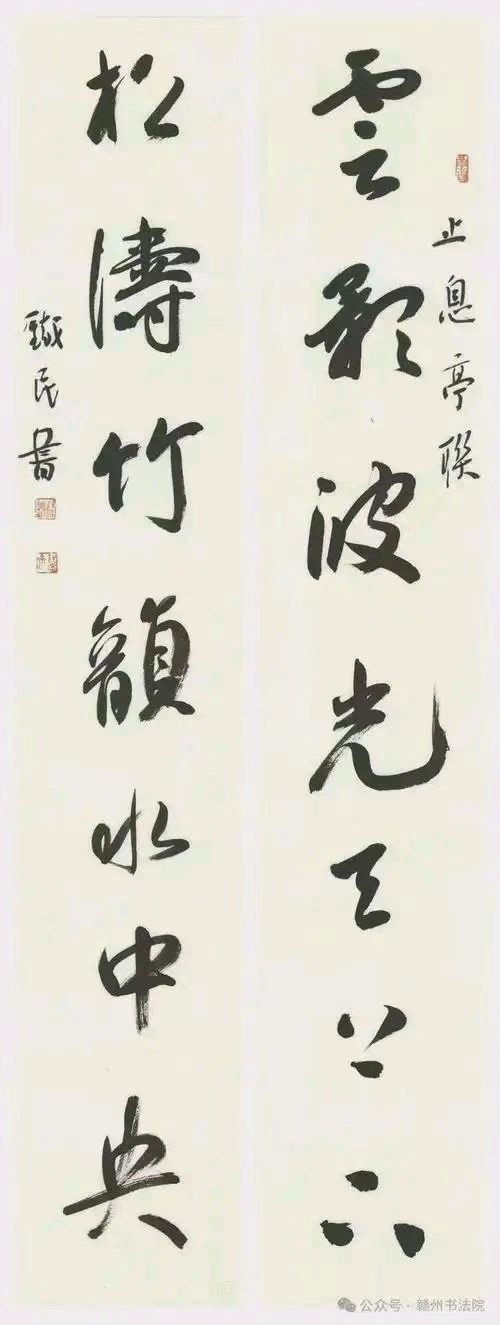 雲影波光天上下
止息亭聯
松濤竹韻水中央
鐵民書
公众号 · 赣州书法院